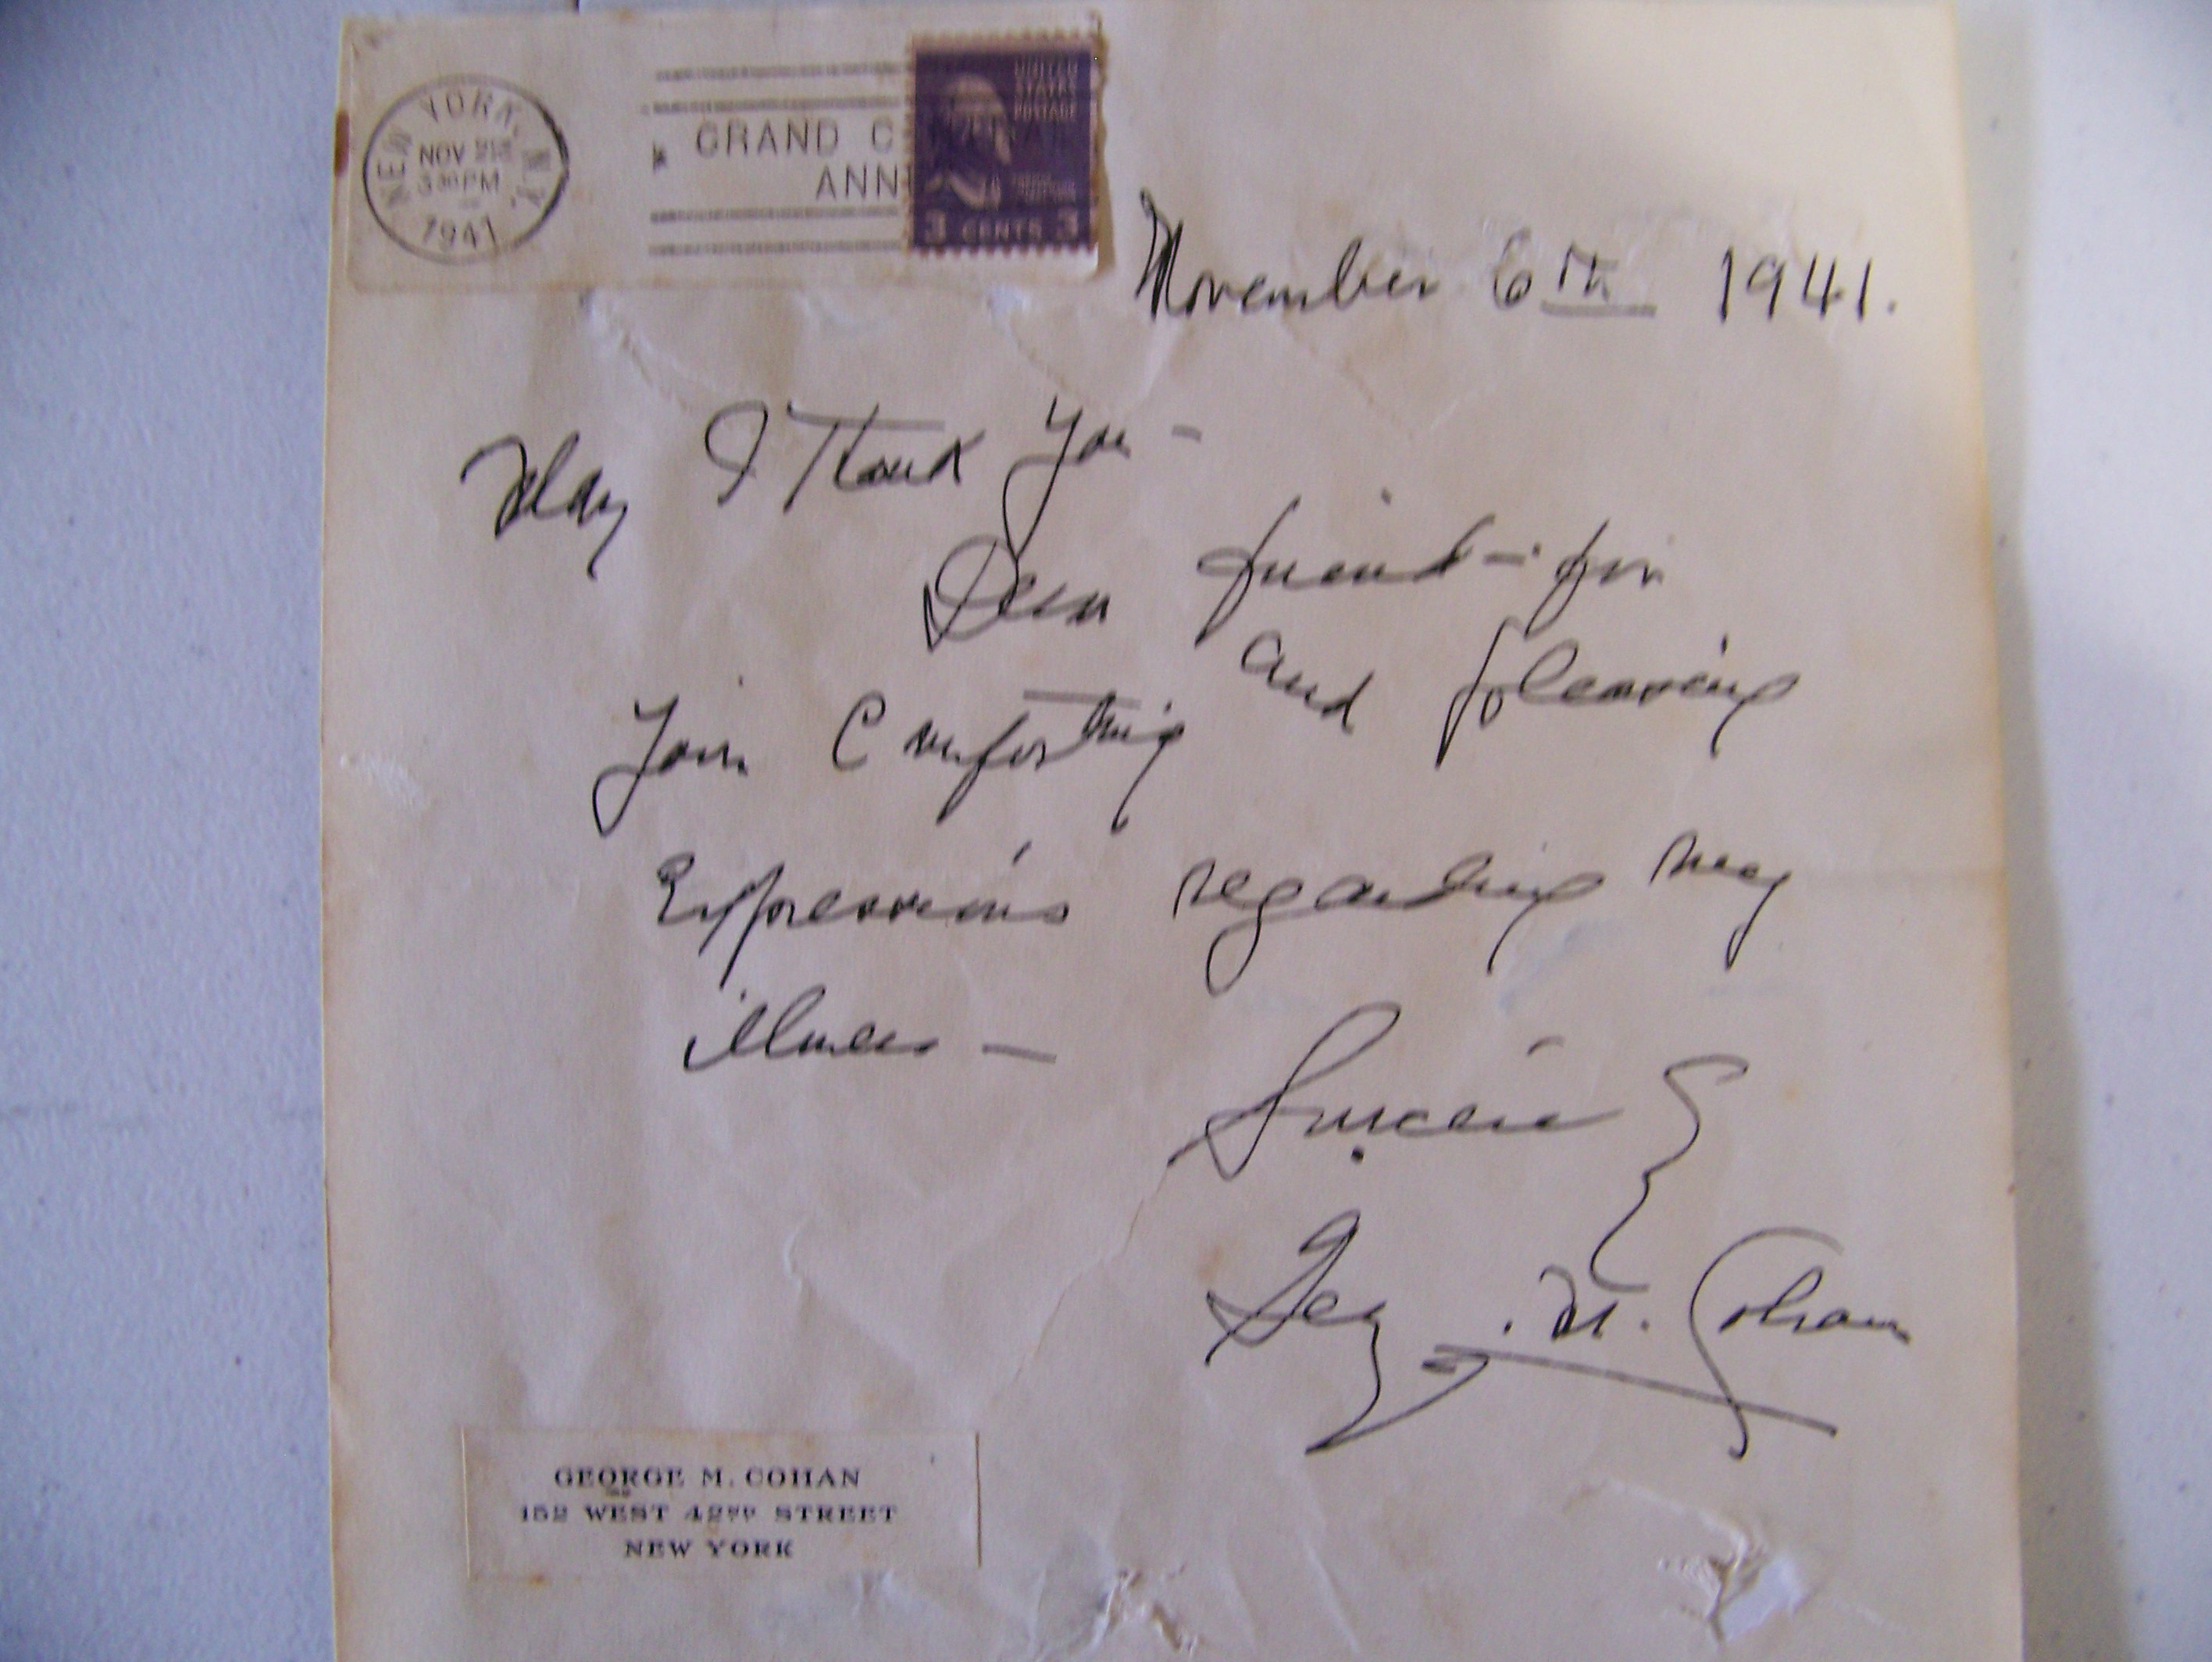 NEW YORK, N.Y.
NOV 21
3 30 PM
1941
GRAND C
ANN
UNITED
STATES
POSTAGE
3 CENTS 3
November 6th 1941.
May I Thank You -
Dear friend - for
Your Comforting and pleasing
Expressions regarding my
illness —
Sincere
Geo. M. Cohan
GEORGE M. COHAN
152 WEST 42ND STREET
NEW YORK